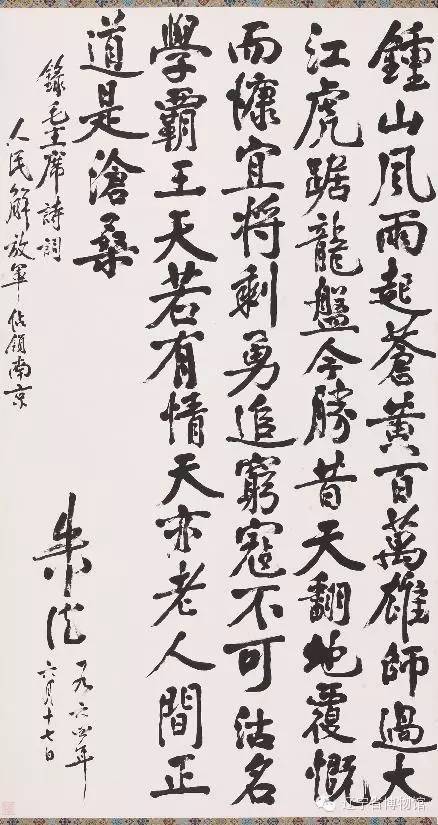 鍾山風雨起蒼黄百萬雄師過大
江虎踞龍盤今勝昔天翻地覆慨
而慷宜将剩勇追窮寇不可沽名
學霸王天若有情天亦老人間正
道是滄桑
錄毛主席詩詞
人民解放軍佔領南京
朱德
一九六四年
六月十七日
辽宁省博物馆